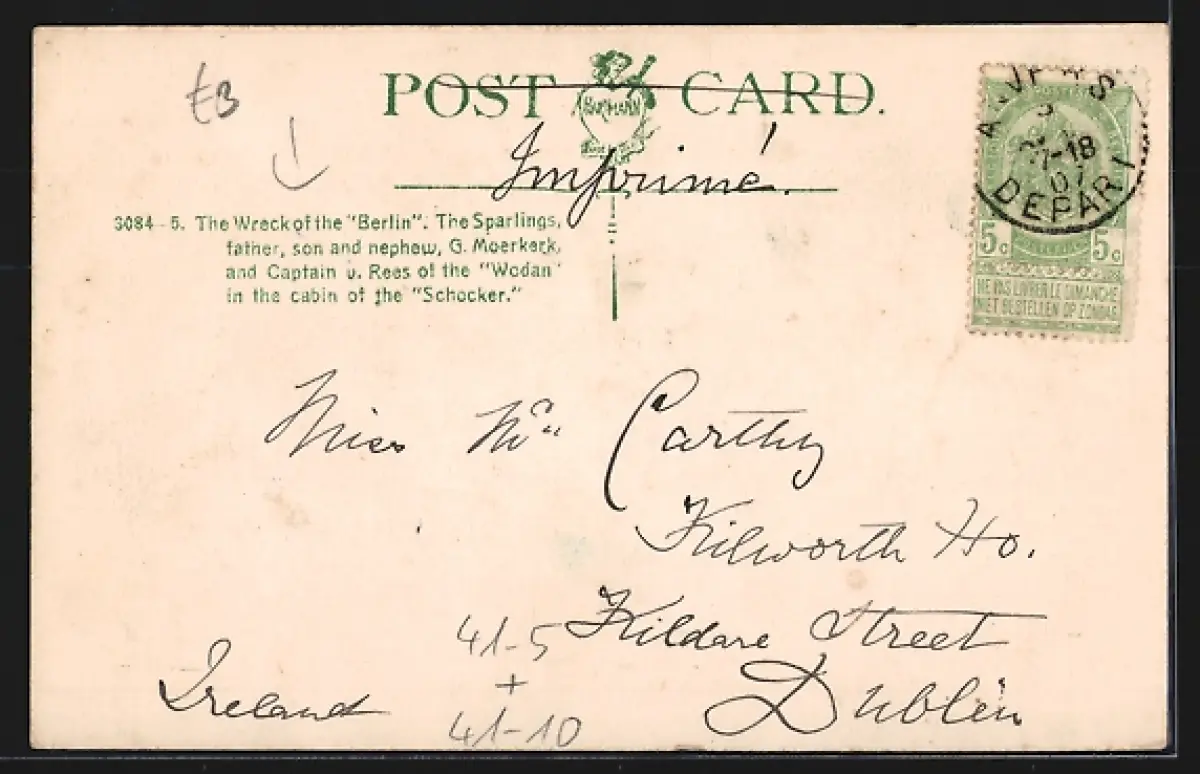 EB
POST CARD.
HARTMANN
Imprimé.
3084 - 5. The Wreck of the "Berlin". The Sparlings,
father, son and nephew, G. Moerkerk,
and Captain v. Rees of the "Wodan"
in the cabin of the "Schocker."
ANVERS
17-18
07
DEPART
5c 5c
NE PAS LIVRER LE DIMANCHE
NIET BESTELLEN OP ZONDAG
Miss Mc Carthy
Kilworth Ho.
Kildare Street
Dublin
Ireland
41-5
+
41-10